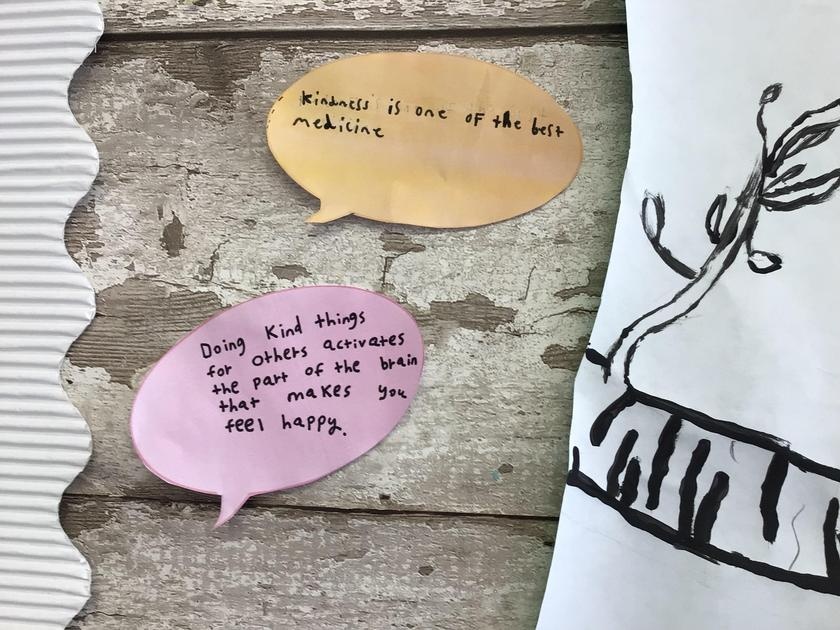 kindness is one of the best
medicine
Doing kind things
for others activates
the part of the brain
that makes you
feel happy.